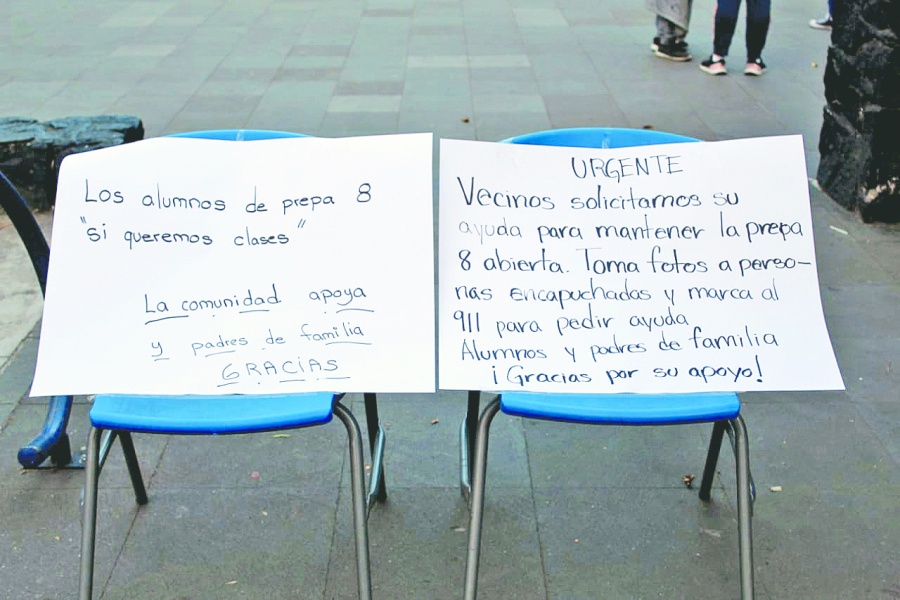 Los alumnos de prepa 8
"si queremos clases"
La comunidad apoya
y padres de familia
GRACIAS
URGENTE
Vecinos solicitamos su
ayuda para mantener la prepa
8 abierta. Toma fotos a perso-
nas encapuchadas y marca al
911 para pedir ayuda
Alumnos y padres de familia
¡Gracias por su apoyo!